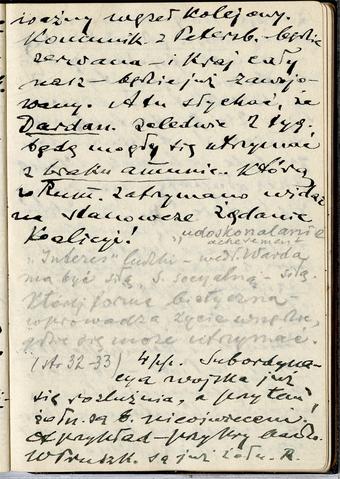 ważny węzeł kolejowy.
Komunik. z Petersb. będzie
zerwana – i Kraj cały
nasz – będzie już zawojo-
wany. A tu słychać, że
Dardan. zaledwie 2 tyg.
będą mogły się utrzymać
z braku amunic. którą
w Rum. zatrzymano widać
na stanowcze żądanie
Koalicji!
"udoskonalanie
achievement
"Interes" ludzki – wedł. Warda
ma być siłą, S. socyalną – siłą
której forma bio
wprowadza życie wszędzie,
gdzie się może utrzymać.
(str 32-33) Subordyna-
cya wojska już
się rozluźnia, a przytem,
żołn. są b. nieoświeceni.
ot przykład – przykry bardzo.
W Prusk. są już żołn. R.